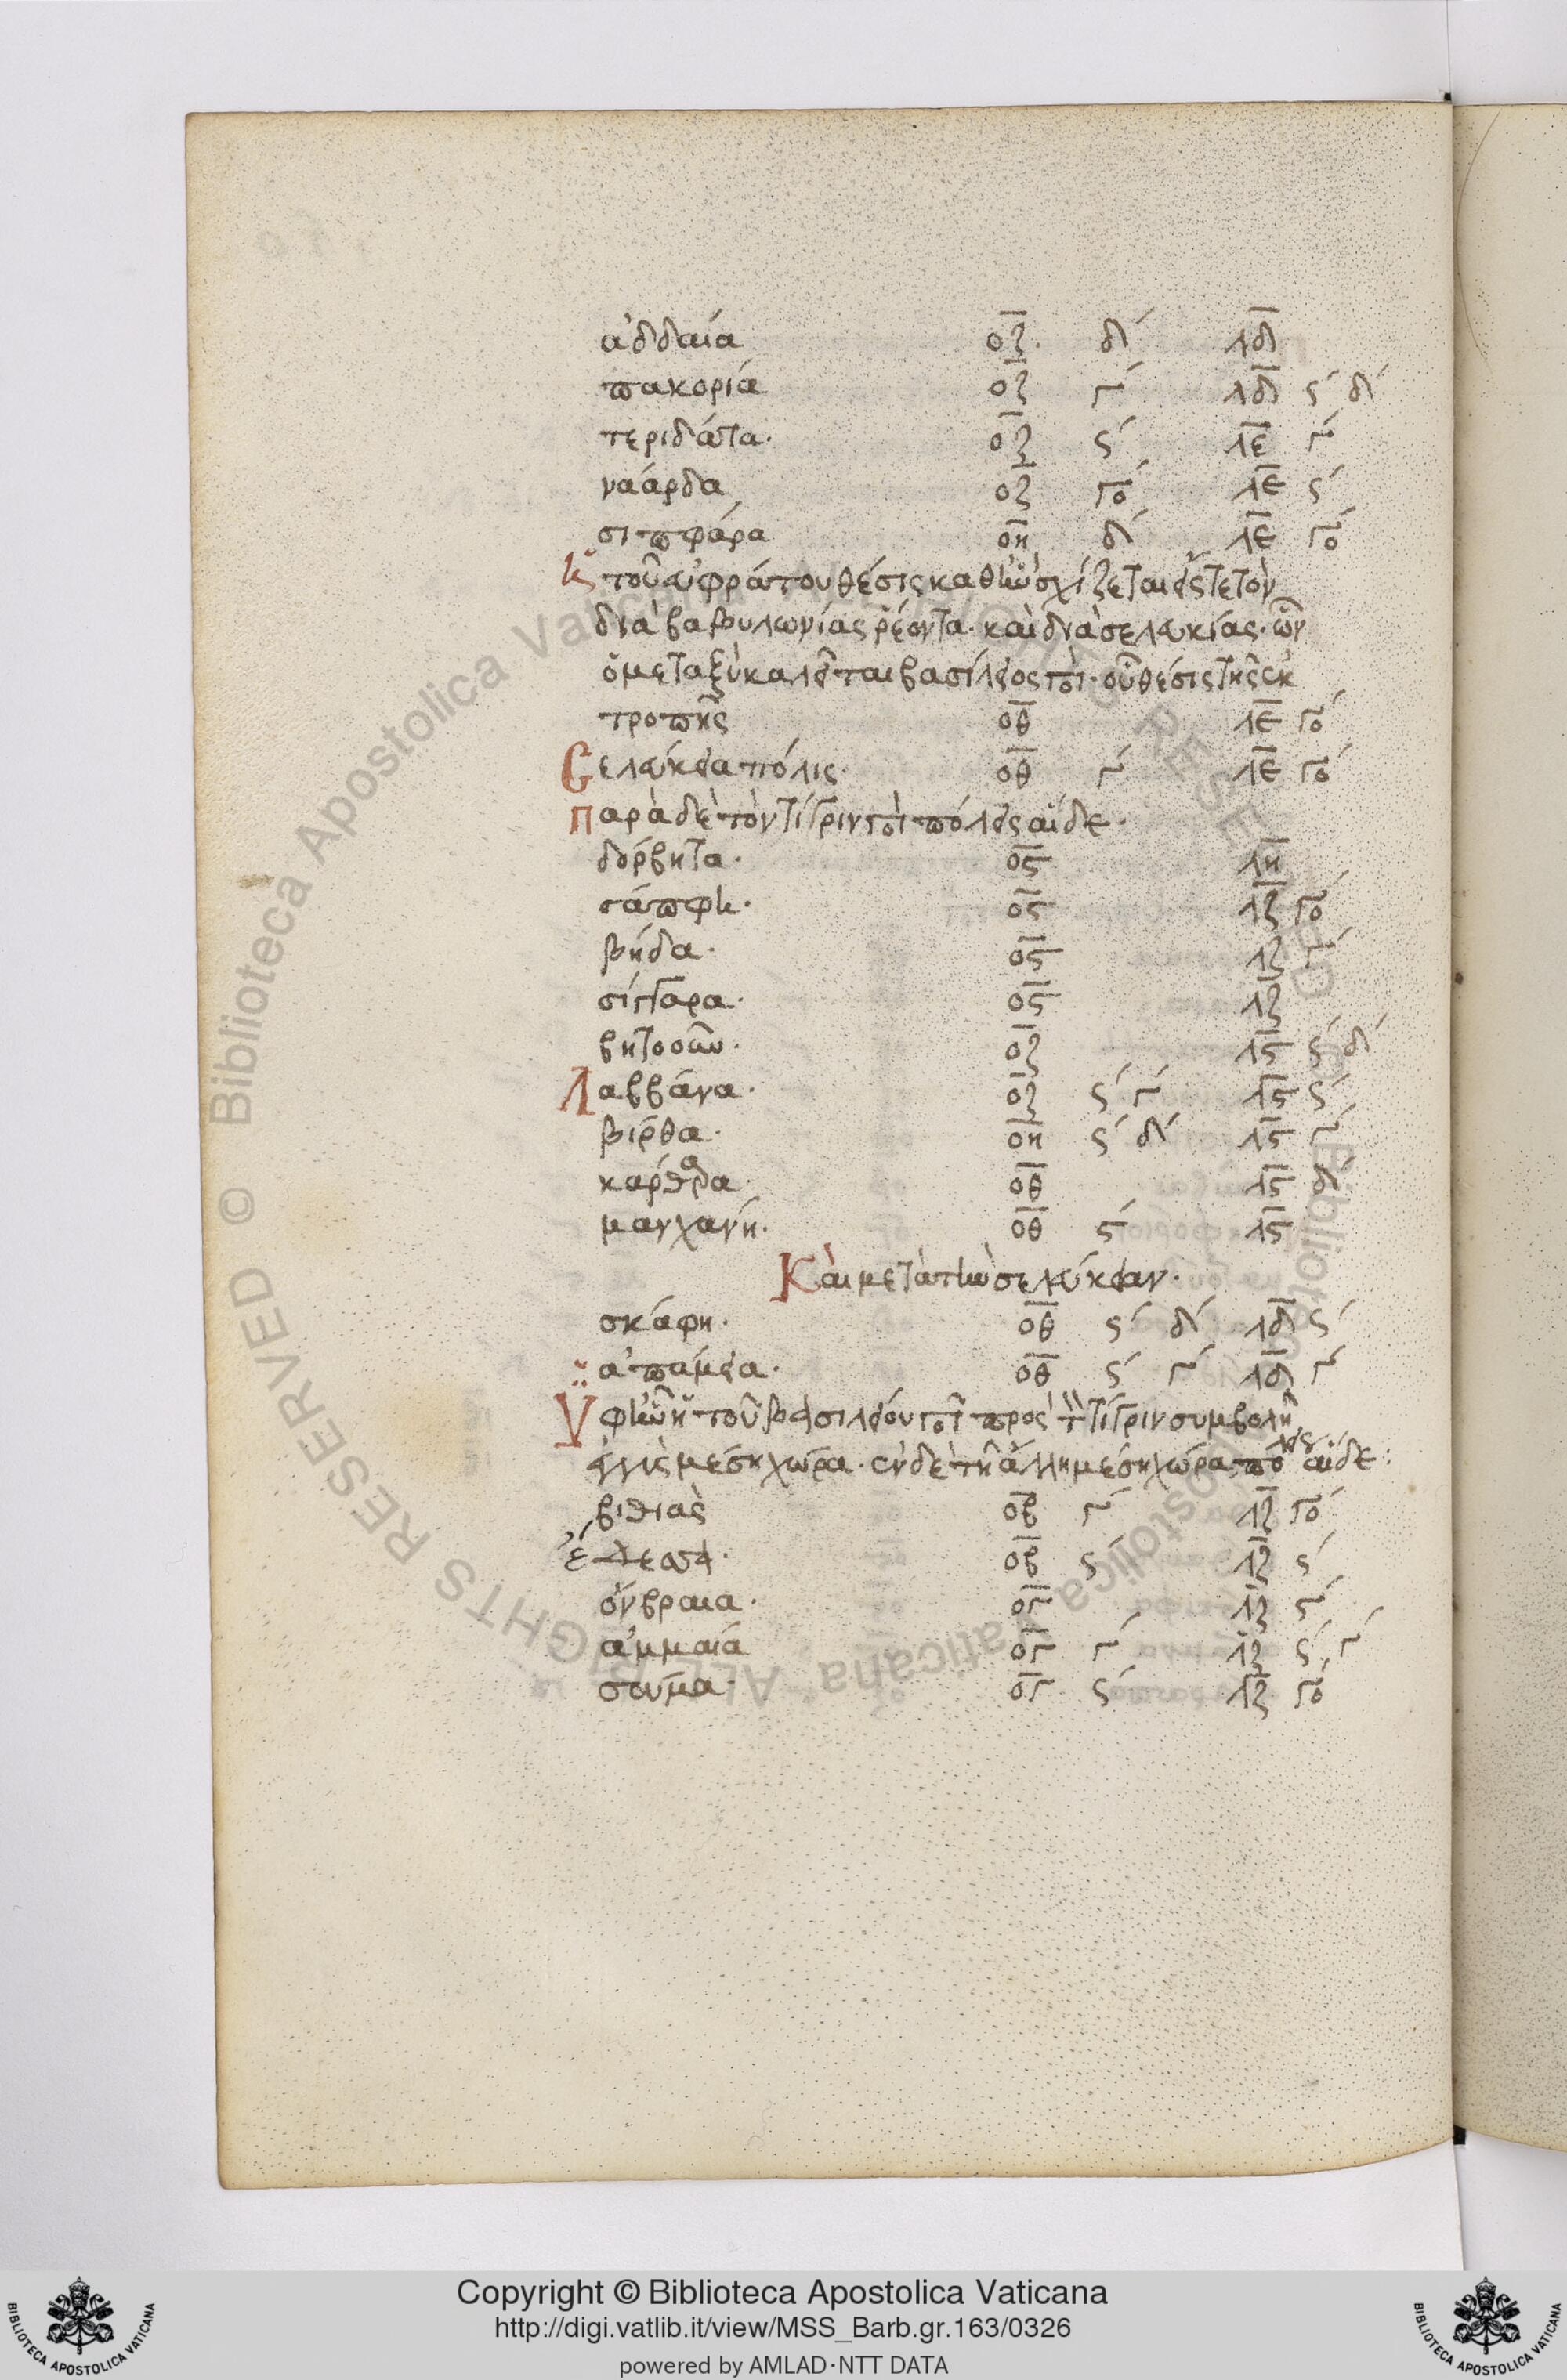 ἀδδαία οζ. δ´ λδ
πακορία οζ γ´ λδ ς´ δ´
τεριδάτα. οζ ς´ λε γ´
ναάρδα οζ γο´ λε ς´
σιπφάρα οη δ´ λε γο´
κ τοῦ εὐφράτου θέσις καθ ἣν σχίζεται εἴς τε τὸν
διὰ βαβυλωνίας ῥέοντα. καὶ διὰ σελευκίας. ὧν
ὁ μεταξὺ καλεῖται βασίλειος ποτ. οὗ θέσις τῆς ἐκ
τροπῆς οθ λε γο´
Σελεύκεια πόλις. οθ γ´ λε γο´
Παρὰ δὲ τὸν τίγριν ποτ πόλεις αἵδε.
δόρβητα. ος λη
σάπφη. ος λζ γο´
βήδα. ος λζ γ´
σίγγαρα. ος λζ
βητοοῦν. οζ λς ς´ δ´
Λαββάνα. οζ ς´ γ´ λς ς´
βίρθα. οη ς´ δ´ λς γ´
κάρθαδα. οθ λς δ´
μανχανή. οθ ς´ λς
Καὶ μετὰ τὴν σελεύκειαν.
σκάφη. οθ ς´ δ´ λδ ς´
ἀπάμεια. οθ ς´ γ´ λδ γ´
Ὑφ ἣν ἡ τοῦ βασιλείου ποτ πρὸς τ τίγριν συμβολή
μέση χώρα. ἐν δὲ τῆ ἄλλη μέση χώρα πόλεις αἵδε:
βιθιὰς οβ γ´ λζ γο´
ἔδεσσα. οβ ς´ λζ ς´
ογ λζ
ἀμμαιά ογ γ´ λζ ς´ γ´
σούμα. ογ ς´ λζ γο´
© Biblioteca Apostolica Vaticana ALL RIGHTS RESERVED
Copyright © Biblioteca Apostolica Vaticana
http://digi.vatlib.it/view/MSS_Barb.gr.163/0326
powered by AMLAD·NTT DATA
BIBLIOTECA APOSTOLICA VATICANA
BIBLIOTECA APOSTOLICA VATICANA